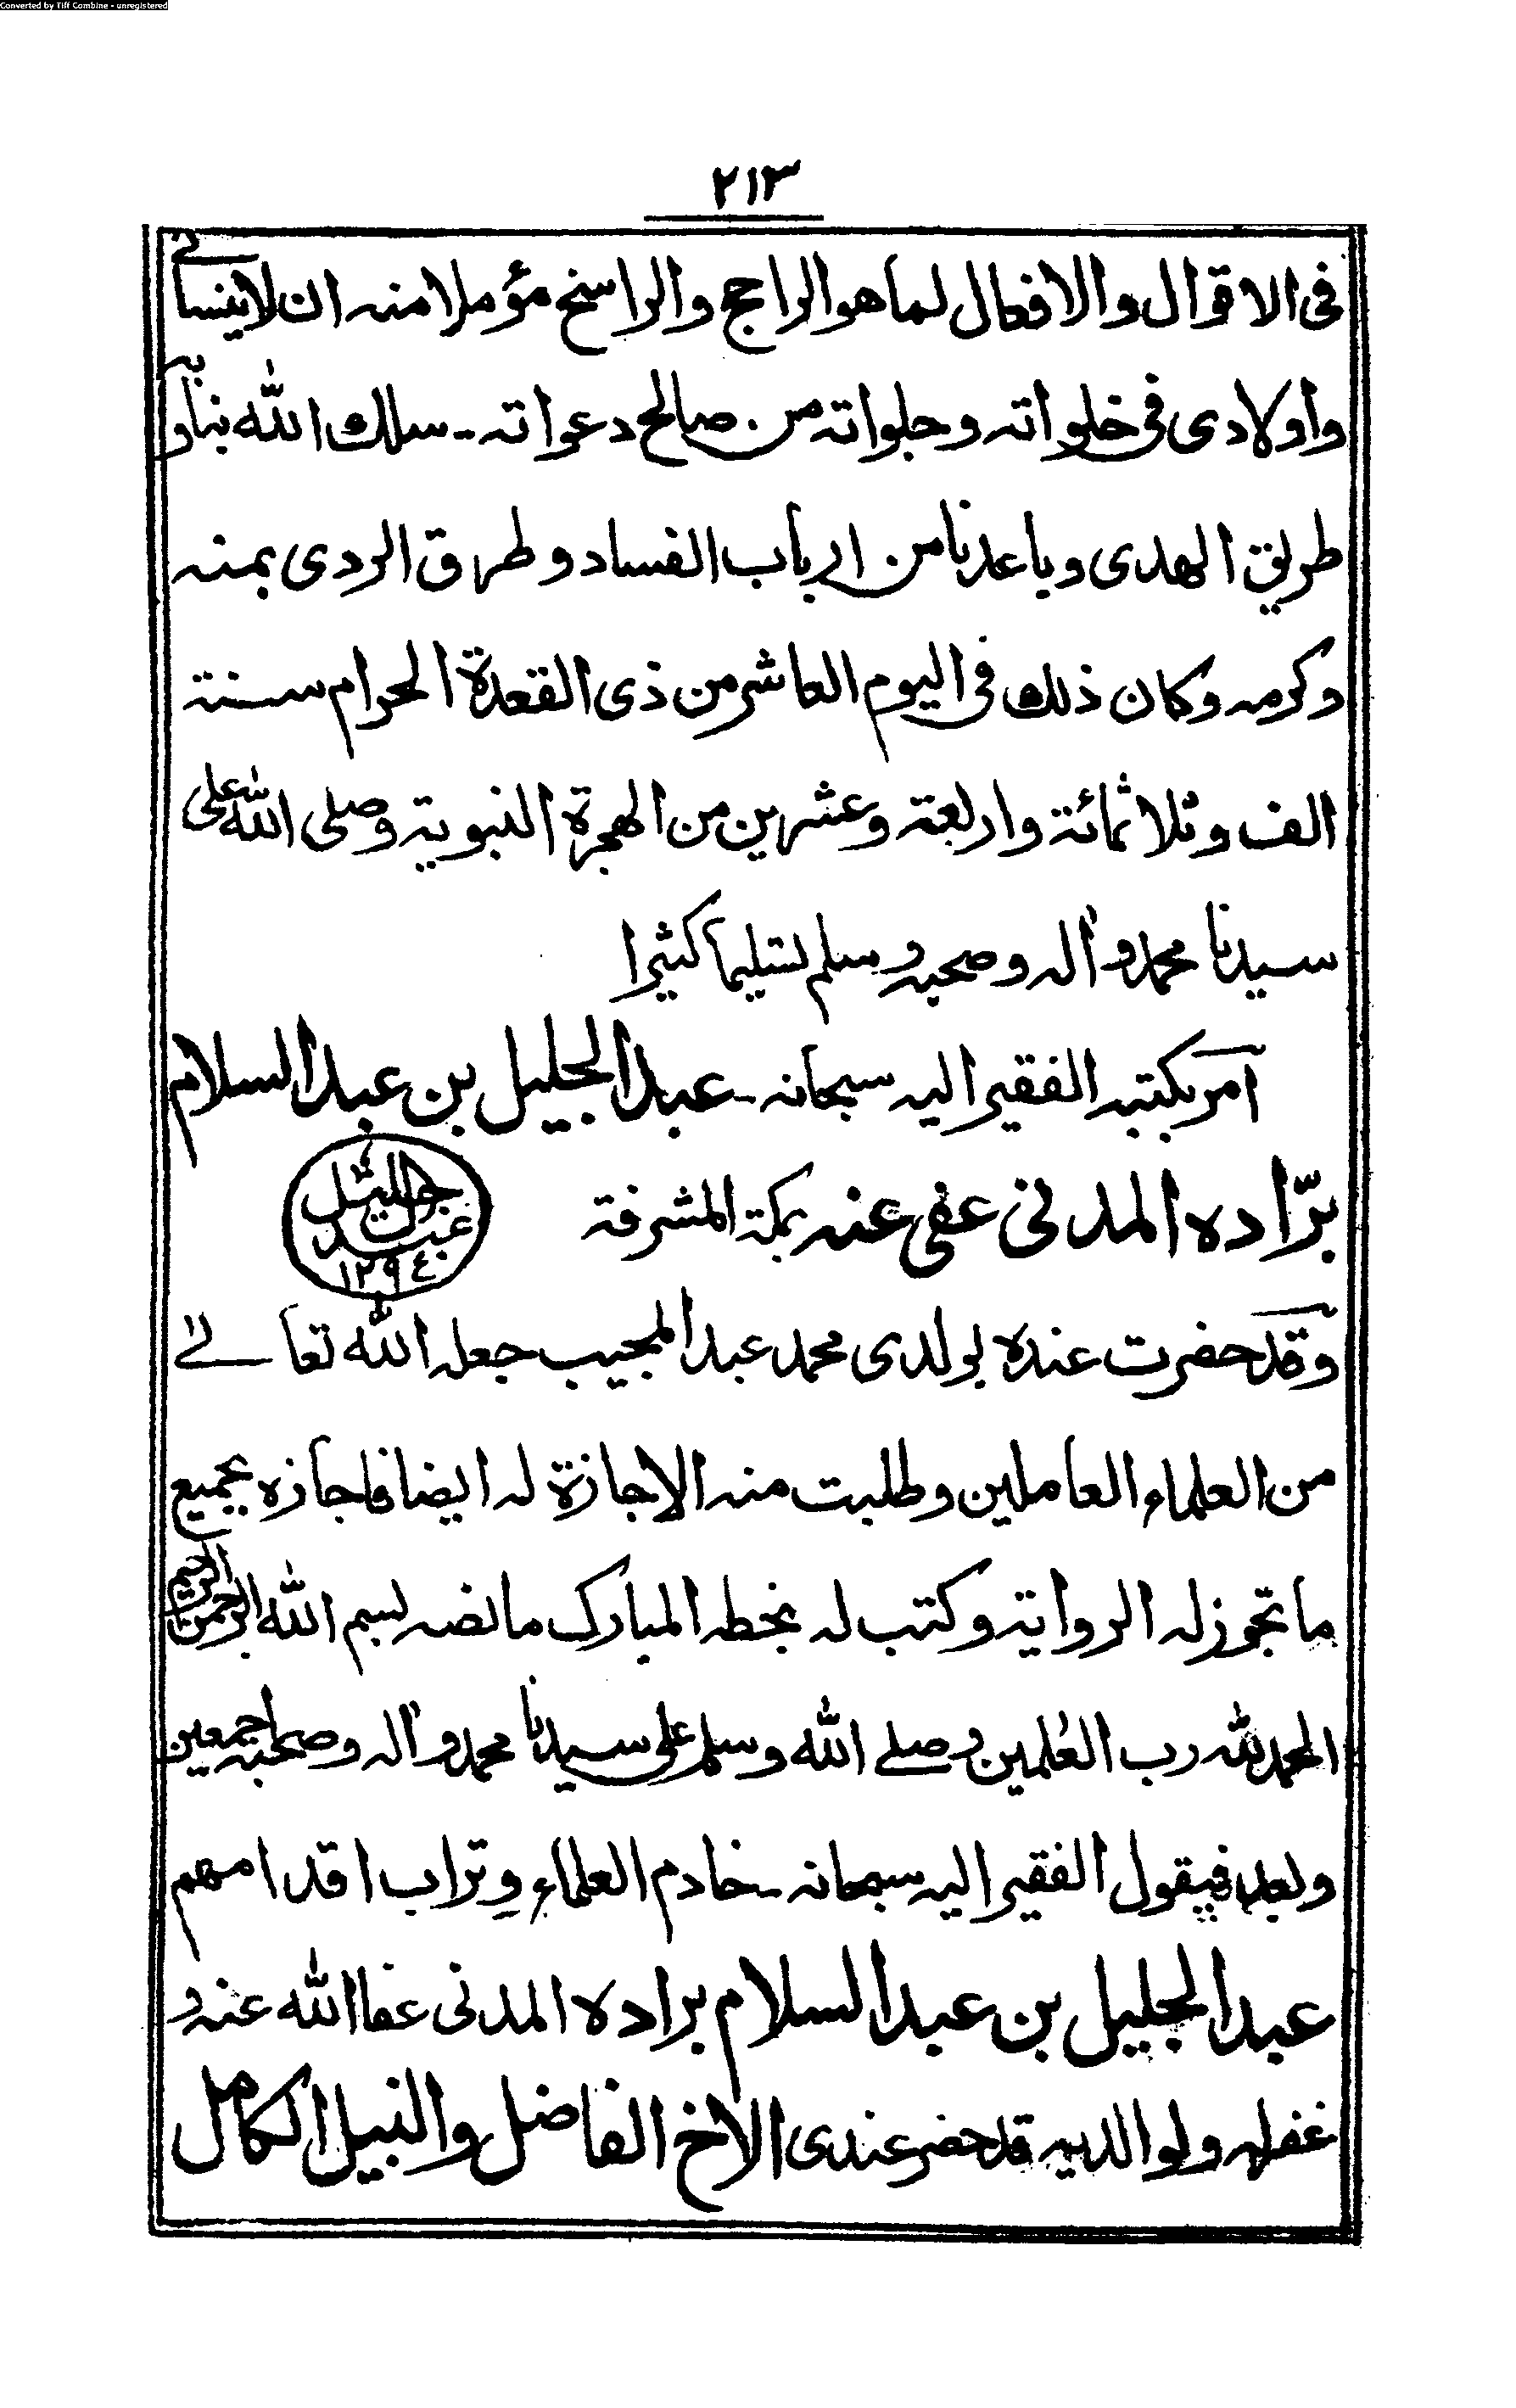 Converted by Tiff Combine - unregistered
٢١٣
فى الاقوال والافعال لما هو الراجح والراسخ مؤملا منه ان لا ينسانى
واولادى فى خلواته وجلواته من صالح دعواته - سلك الله بنا وبه
طريق الهدى وباعدنا من ارباب الفساد وطرق الردى بمنه
وكرمه وكان ذلك فى اليوم العاشر من ذى القعدة الحرام سنة
الف وثلاثمائة واربعة وعشرين من الهجرة النبوية وصلى الله على
سيدنا محمد وآله وصحبه وسلم تسليما كثيرا
امر بكتبه الفقير اليه سبحانه - عبد الجليل بن عبد السلام
برّاده المدنى عفى عنه بمكة المشرفة
عبد الجليل ١٢٩٤
وقد حضرت عنده بولدى محمد عبد المجيب جعله الله تعالے
من العلماء العاملين وطلبت منه الاجازة له ايضا فاجازه بجميع
ما تجوز له الرواية وكتب له بخطه المبارك ما نصه بسم الله الرحمن الرحيم
الحمد لله رب العٰلمين وصلے الله وسلم على سيدنا محمد وآله وصحبه اجمعين
وبعد فيقول الفقير اليه سبحانه - خادم العلماء وتراب اقدامهم
عبد الجليل بن عبد السلام براده المدنى عفا الله عنه و
غفر له ولوالديه قد حضر عندى الاخ الفاضل والنبيل الكامل